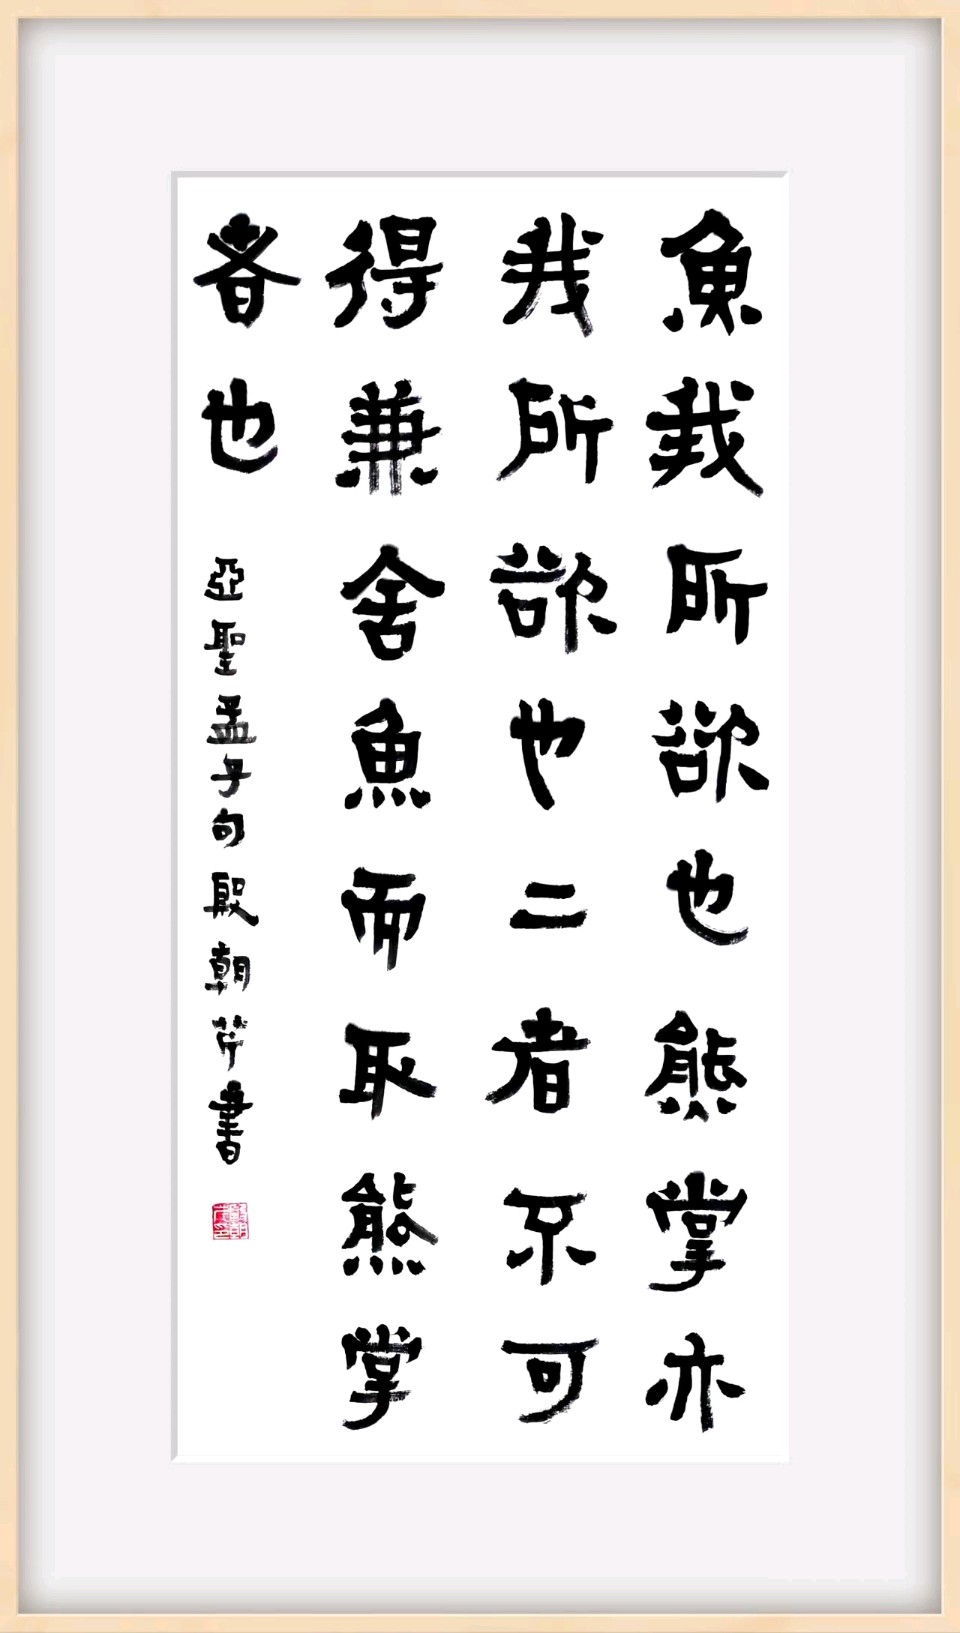 魚我所欲也熊掌亦
我所欲也二者不可
得兼舍魚而取熊掌
者也
亞聖孟子句殷朝芹書